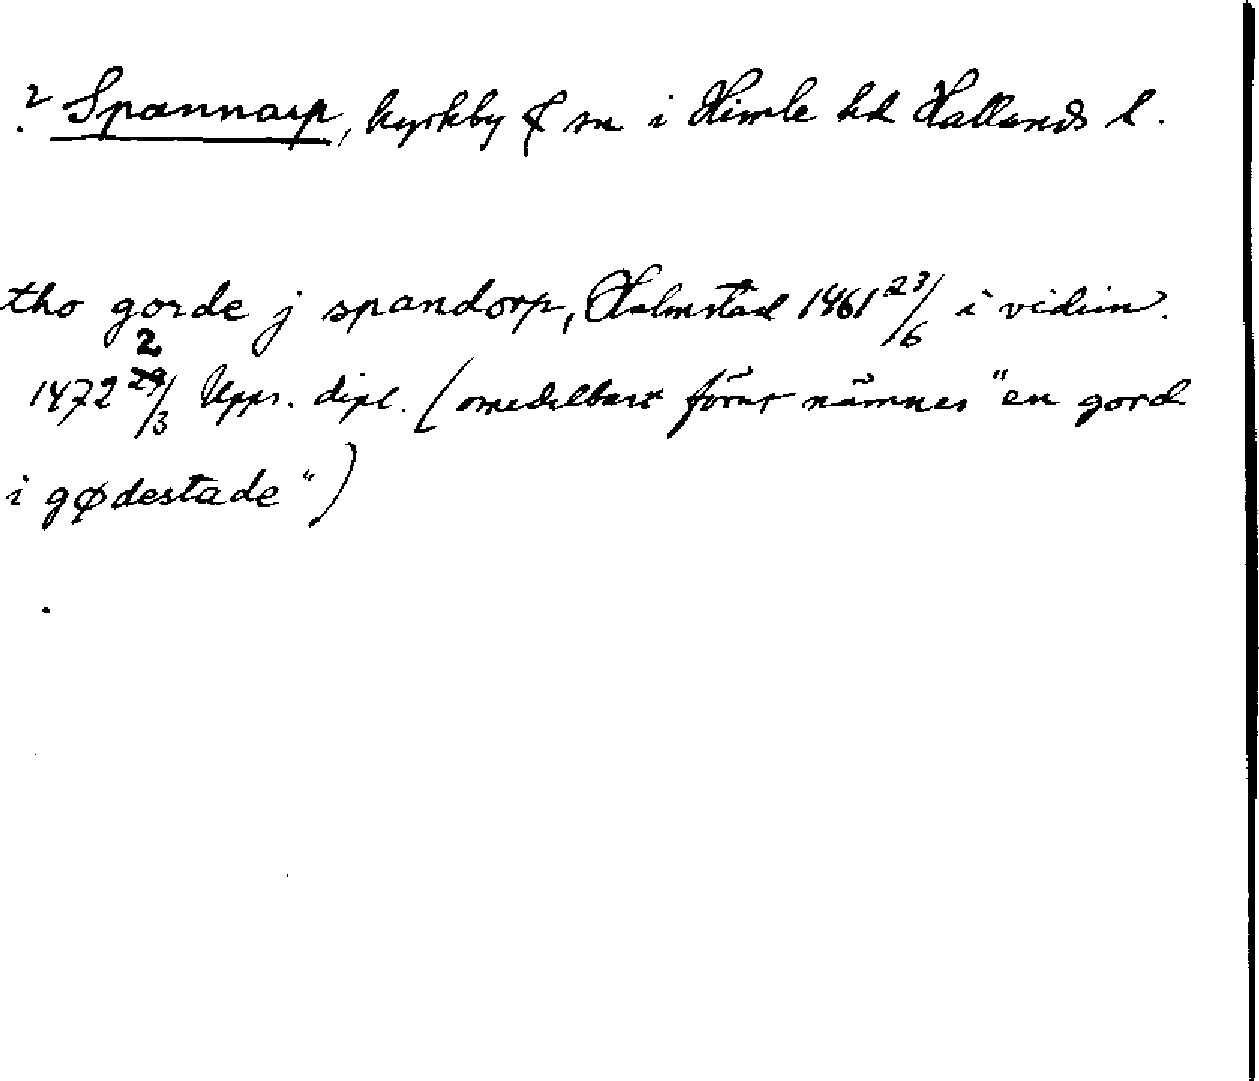 ? Spannarp, kyrkby & sn i Himle hd Hallands l.
tho gorde j spandorp, Halmstad 1461 23/6 i vidim.
1472 2/3 Upps. dipl. (omedelbart förut nämnes "en gord
i gødestade")